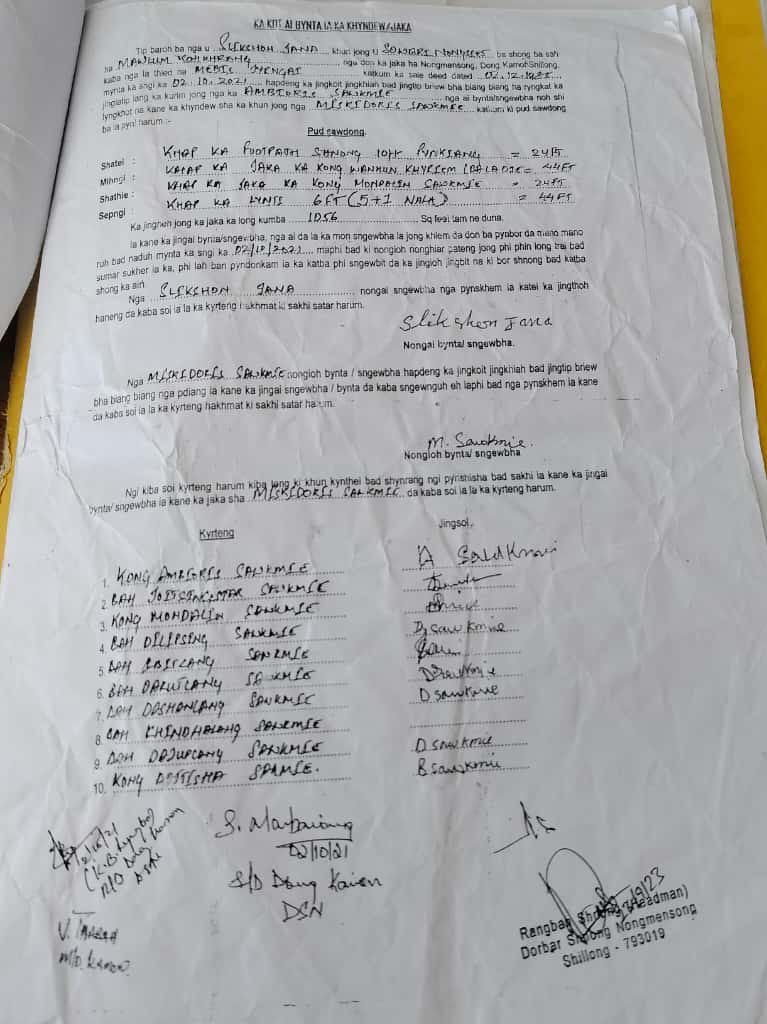 KA KOT AI BYNTA IA KA KHYNDEW/JAKA
Tip baroh ba nga u SLIKSHON JANA khun jong ti ba shong ba sah
ha MAWJUM KOHKHRANG nga don ka jaka ha Nongmensong, Dong Kamon Shillong,
kaba nga la thied na katkum ka sale deed dated 02.12.1985
mynta ka sngi ka 02.10.2021 hapdeng ka jingkoit jingkhiah bad jingtip briew bha biang biang ha ryngkat ka
jingiatip lang ka kurim jong nga ka AMBTORIS SAWKMIE nga ai bynta/sngewbha noh shi
lyngkhot na kane ka khyndew sha ka khun jong nga MISKIDORIS SAWKMIE katkum ki pud sawdong
ba la pyni harum :-
Pud sawdong.
Shatei : KHAP KA FOOTPATH SHNONG 10FT PYNKIANG = 24FT
Mihngi : KHAP KA JAKA KA KONG WANHUN KHYRIEM = 44FT
Shathie : KHAP KA JAKA KA KONG MONDALIN SAWKMIE = 24FT
Sepngi : KHAP KA LYNTI 6FT (5+1 NALA) = 44FT
Ka jingheh jong ka jaka ka long kumba 1056 Sq feet lam ne duna.
Ia kane ka jingai bynta/sngewbha, nga ai da la ka mon sngewbha la jong khlem da don ba pynbor da mano mano
ruh bad naduh mynta ka sngi ka 02/10/2021 maphi bad ki nongioh nonghiar pateng jong phi phin long trai bad
sumar sukher ia ka, phi lah ban pyndonkam ia ka katba phi sngewbit da ka jingioh jingbit na ki bor shnong bad katba
shong ka aiñ.
Nga SLIKSHON JANA nongai sngewbha nga pynskhem ia katei ka jingthoh
haneng da kaba soi ia la ka kyrteng hakhmat ki sakhi satar harum.
Slikshon Jana
Nongai bynta/ sngewbha.
Nga MISKIDORIS SAWKMIE nongioh bynta / sngewbha hapdeng ka jingkoit jingkhiah bad jingtip briew
bha biang biang nga pdiang ia kane ka jingai sngewbha / bynta da kaba sngewnguh eh iaphi bad nga pynskhem ia kane
da kaba soi ia la ka kyrteng hakhmat ki sakhi satar harum.
M. Sawkmie.
Nongioh bynta/ sngewbha
Ngi kiba soi kyrteng harum kiba long ki khun kynthei bad shynrang ngi pynshisha bad sakhi ia kane ka jingai
bynta/ sngewbha ia kane ka jaka sha MISKIDORIS SAWKMIE da kaba soi ia la ka kyrteng harum.
Kyrteng Jingsoi.
1. KONG AMBTORIS SAWKMIE A Sawkmie
2. BAH SAWKMIE
3. KONG MONDALIN SAWKMIE
4. BAH DILIPSING SAWKMIE D Sawkmie
5. BAH SAWKMIE
6. BAH SAWKMIE D Sawkmie
7. BAH SAWKMIE D Sawkmie
8. BAH SAWKMIE
9. BAH SAWKMIE D Sawkmie
10. KONG B Sawkmie
02/10/21
S/D Dong Kamon
DSN
Rangbah Shnong (Headman)
Dorbar Shnong Nongmensong
Shillong - 793019